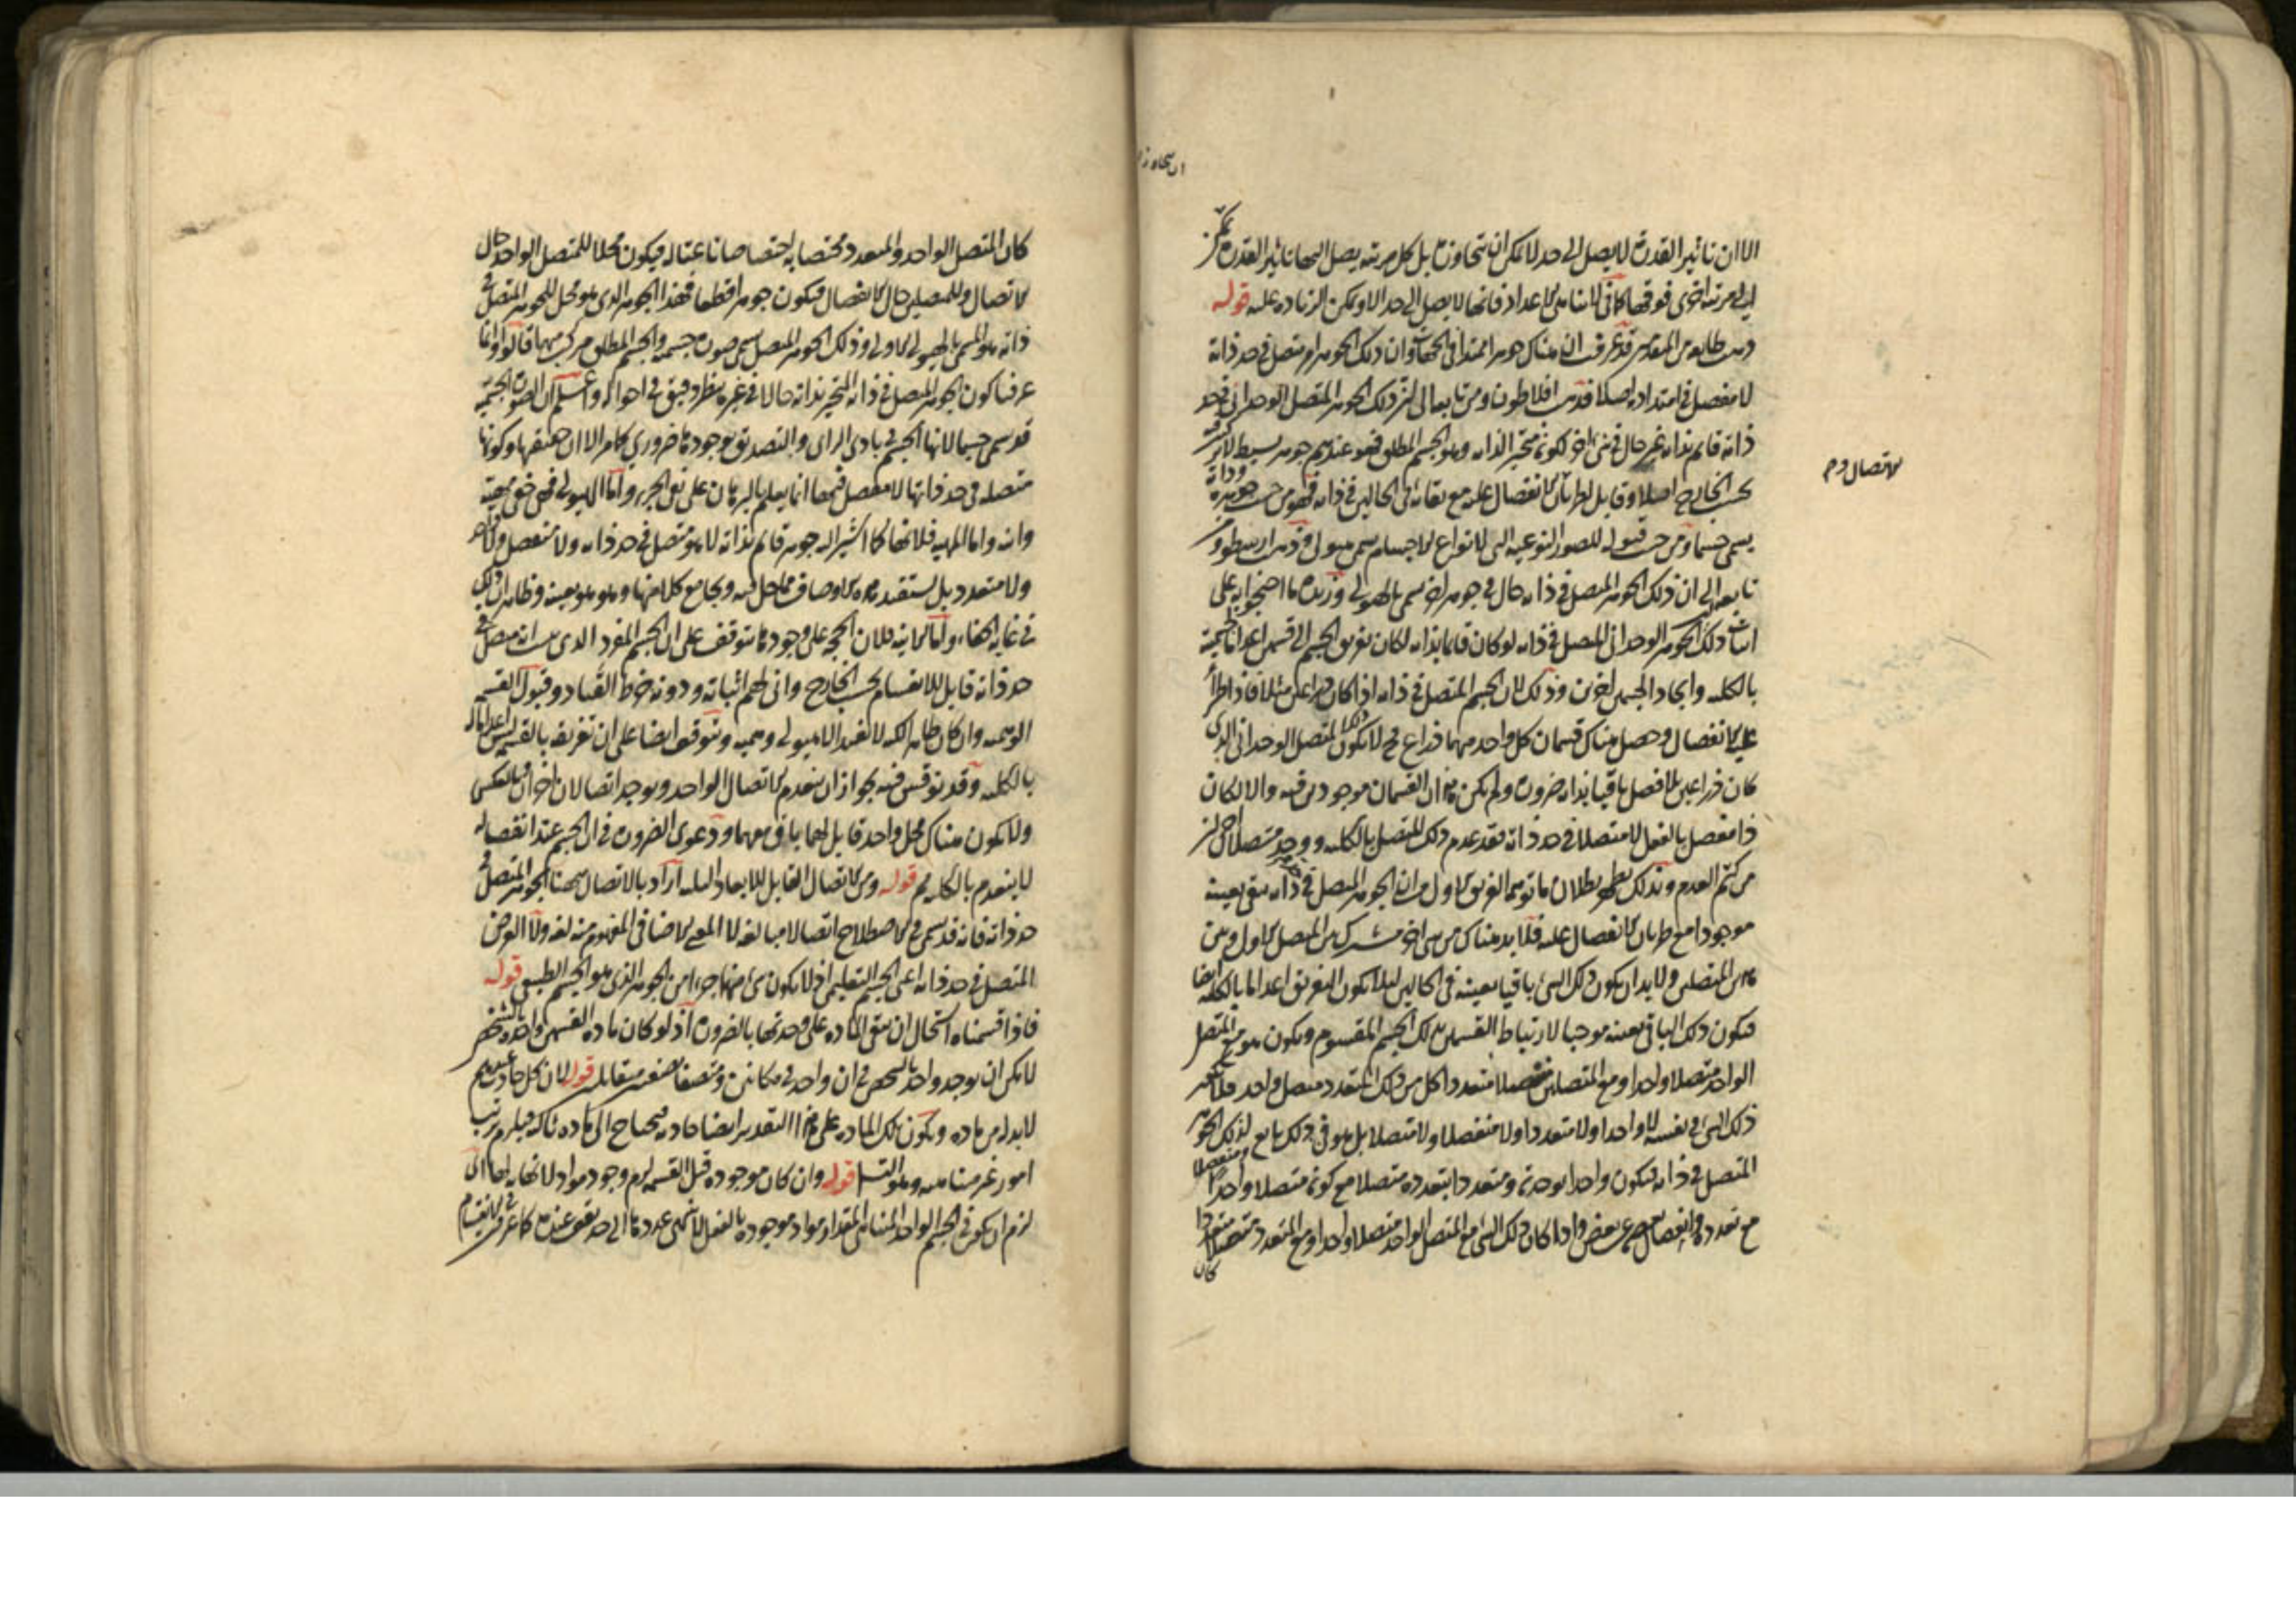 الا ان تاثير القدرة لا يصل الى حد لا يمكن ان يتجاوزه بل كل مرتبة يصل اليها تاثير القدرة يمكن
الى مرتبة اخرى فوقها كما في لا تناهي الاعداد فانها لا يصل الى حد الا ويمكن الزيادة عليه قوله
قد عرفت ان هناك جوهرا ممتدا في الجهات وان ذلك الجوهر امر متصل في حد ذاته
لا مفصل في امتداده اصلا فذهب افلاطون ومن تابعه الى ان ذلك الجوهر المتصل الوحداني في حد
ذاته قائم بذاته غير حال في شئ اخر لكونه متحيز الذات وهو الجسم المطلق فهو عندهم جوهر بسيط لا تركيب فيه
بحسب الخارج اصلا وقابل لطريان الانفصال عليه مع بقائه في الحالين في ذاته فهو من حيث جوهره وذاته
الاتصال وح
يسمى جسما ومن حيث قبوله للصور النوعية التي لانواع الاجسام يسمى هيولى وذهب ارسطو ومن
تابعه الى ان ذلك الجوهر المتصل في ذاته حال في جوهر اخر يسمى بالهيولى وزبدة ما احتجوا به على
اثبات ذلك الجوهر ان الوحداني المتصل في ذاته لو كان قائما بذاته لكان تفريق الجسم الى قسمين اعداما لجسمه
بالكلية وايجاد الجسمين اخرين وذلك لان الجسم المتصل في ذاته اذا كان ذراعين مثلا فاذا طرأ
عليه الانفصال وحصل هناك قسمان كل واحد منهما ذراع فح لا يكون ذلك المتصل الوحداني الذي
كان ذراعين بلا مفصل باقيا بذاته ضرورة ولم يكن هذان القسمان موجودين فيه والا لكان
ذا مفصل بالفعل لا متصلا في حد ذاته فقد عدم ذلك المتصل بالكلية ووجد متصلان اخران
من كتم العدم وبذلك يظهر بطلان ما توهمه الفريق الاول من ان الجوهر المتصل في ذاته يبقى بعينه
موجودا مع طريان الانفصال عليه فلا بد هناك من شئ اخر مشترك بين المتصل الاول وبين
هذين المتصلين ولا بد ان يكون ذلك الشئ باقيا بعينه في الحالين لئلا يكون التفريق اعداما بالكلية ايضا
فيكون ذلك الباقي بعينه موجبا لارتباط القسمين بذلك الجسم المقسوم ويكون هو مع المتصل
الواحد متصلا واحدا ومع المتصلين متصلا متعددا كل من ذلك المتعدد متصل واحد
ذلك الشئ في نفسه لا واحدا ولا متعددا ولا منفصلا ولا متصلا بل هو في ذلك تابع لذلك الجوهر
المتصل في ذاته فيكون واحدا بوحدته ومتعددا بتعدده متصلا مع كونه متصلا واحدا ومنفصلا
مع تعدده وانفصال بعضه عن بعض واذا كان ذلك الشئ مع المتصل الواحد متصلا واحدا ومع المتعدد متصلا متعددا
كان
كان المتصل الواحد والمتعدد مختصا به اختصاصا ناعتا له فيكون محلا للمتصل الواحد حال
الاتصال وللمتصلين حال الانفصال فيكون جوهرا قطعا فهذا الجوهر الذي هو محل للجوهر المتصل في
ذاته هو المسمى بالهيولى الاولى وذلك الجوهر المتصل يسمى صورة جسمية والجسم المطلق مركب منهما قالوا وانما
عرفنا كون الجوهر المتصل في ذاته المتحيز بذاته حالا في غيره بنظر دقيق في احواله واعلم ان الصورة الجسمية
قد سمى جسما لانها الجسم في بادى الراى والتصديق بوجودها ضروري كما مر الا ان حقيقتها وكونها
متصلة في حد ذاتها لا مفصل فيها انما يعلم بالبرهان على نفي الجزء واما الهيولى فهي خفي مهية
وانية واما المهية فلانها كما اشير اليه جوهر قائم بذاته لا هو متصل في حد ذاته ولا منفصل ولا واحد
ولا متعدد بل يستفيد هذه الاوصاف مما حل فيه ويجامع كلا منها وهو هو بعينه وظاهر ان ذلك
في غاية الخفاء واما الانية فلان الحجة على وجودها تتوقف على ان الجسم المفرد الذي ثبت انه متصل في
حد ذاته قابل للانقسام بحسب الخارج وانى لهم اثباته ودونه خرط القتاد وقبول القسمة
الوهمية وان كان ظاهرا لكنه لا يفيد الا هيولى وهمية وتتوقف ايضا على ان تفريقه بالقسمة ليس اعداما له
بالكلية وقد نوقش فيه بجواز ان ينعدم الاتصال الواحد ويوجد اتصالان اخران وبالعكس
ولا يكون هناك محل واحد قابل لهما باق معهما ودعوى الضرورة في ان الجسم عند انفصاله
لا ينعدم بالكلية قوله ومن الاتصال القابل للابعاد الثلثة اراد بالاتصال ههنا الجوهر المتصل في
حد ذاته فانه قد سمى في الاصطلاح اتصالا مبالغة لا المعنى الاضافي المفهوم منه لغة ولا العرض
المتصل في حد ذاته اعني الجسم التعليمي اذ لا يكون شئ منهما جزءا من الجوهر الذي هو الجسم الطبيعي قوله
فاذا قسمناه استحال ان تبقى المادة على وحدتها بالضرورة اذ لو كان مادة القسمين واحدة بالشخص
لامكن ان يوجد واحد بالشخص في ان واحد في مكانين ومتصفا بصفتين متقابلتين قوله لان كل حادث عندهم
لا بد له من مادة ويكون تلك المادة على هذا التقدير ايضا حادثة فيحتاج الى مادة ثالثة فيلزم ترتب
امور غير متناهية وهو التسلسل قوله وان كان موجودة قبل القسمة لزم وجود مواد لا نهاية لها اي
لزم ان يكون في الجسم الواحد المتناهي المقدار مواد موجودة بالفعل لا ينتهي عددها الى حد يقف عنده كما عرفت في الانقسام